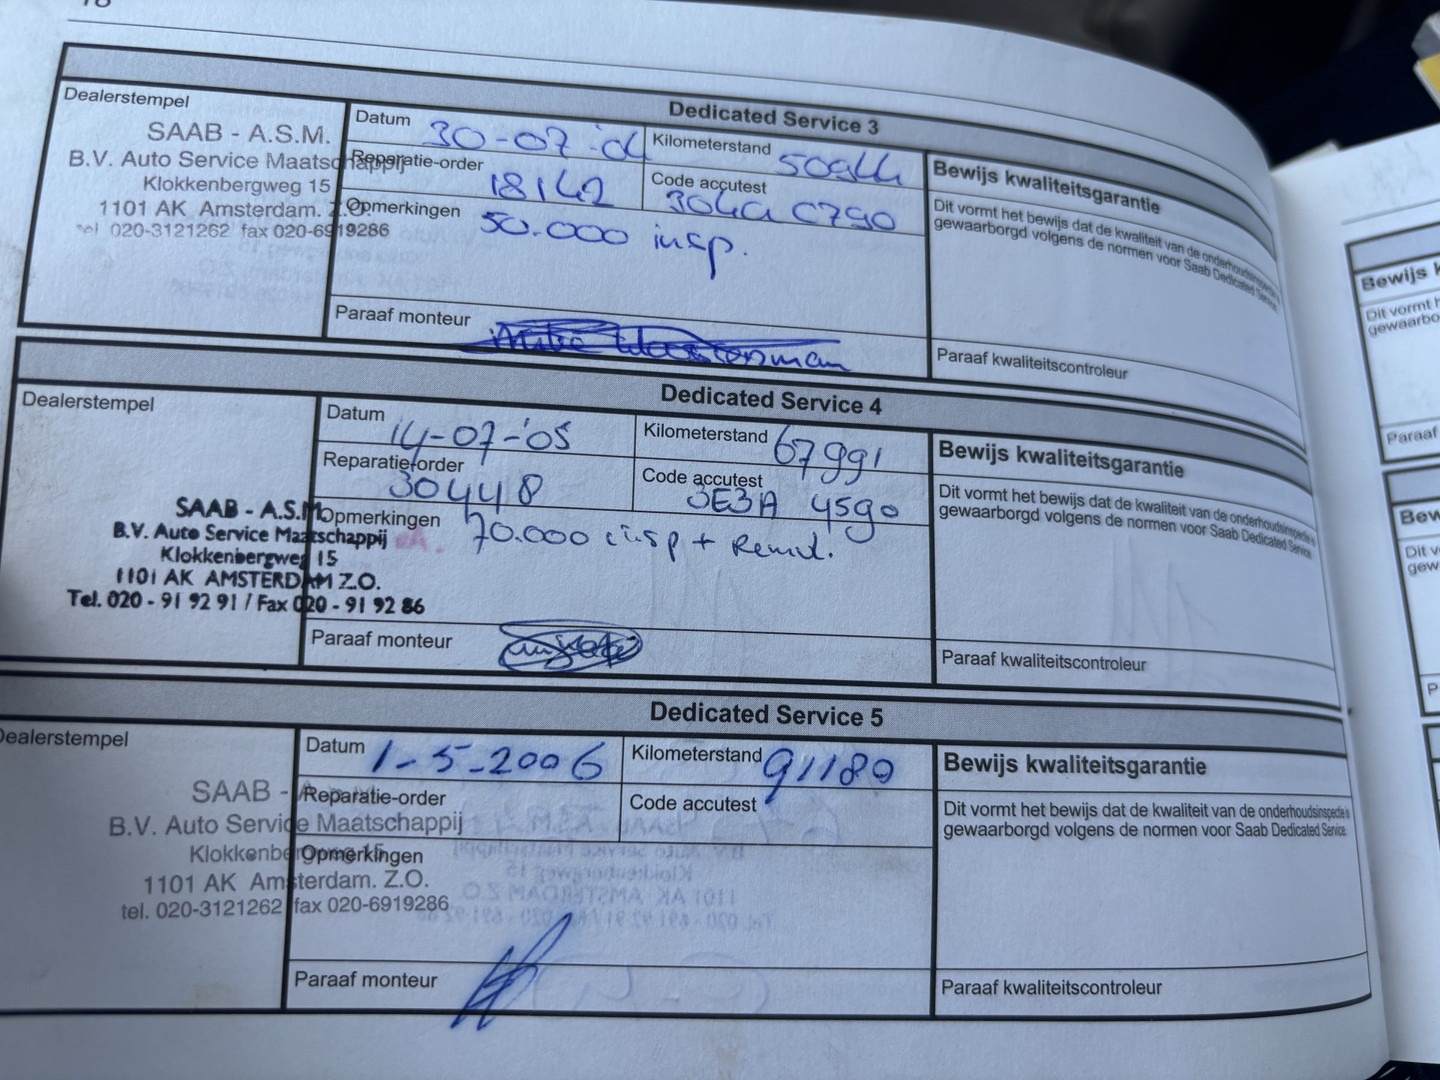 Dedicated Service 3
Dealerstempel
SAAB - A.S.M.
B.V. Auto Service Maatschappij
Klokkenbergweg 15
1101 AK Amsterdam. Z.O.
tel 020-3121262 fax 020-6919286
Datum 30-07-'04
Kilometerstand
Reparatie-order 18142
Code accutest
Opmerkingen 50.000 insp.
Paraaf monteur
Bewijs kwaliteitsgarantie
Dit vormt het bewijs dat de kwaliteit van de onderhoudsinspectie is
gewaarborgd volgens de normen voor Saab Dedicated Service.
Paraaf kwaliteitscontroleur
Dedicated Service 4
Dealerstempel
SAAB - A.S.M.
B.V. Auto Service Maatschappij
Klokkenbergweg 15
1101 AK AMSTERDAM Z.O.
Tel. 020 - 91 92 91 / Fax 020 - 91 92 86
Datum 14-07-'05
Kilometerstand 67991
Reparatie-order 30448
Code accutest 3E3A 4590
Opmerkingen 70.000 insp + Remvl.
Paraaf monteur
Bewijs kwaliteitsgarantie
Dit vormt het bewijs dat de kwaliteit van de onderhoudsinspectie is
gewaarborgd volgens de normen voor Saab Dedicated Service.
Paraaf kwaliteitscontroleur
Dedicated Service 5
Dealerstempel
SAAB - A.S.M.
B.V. Auto Service Maatschappij
Klokkenbergweg 15
1101 AK Amsterdam. Z.O.
tel. 020-3121262 fax 020-6919286
Datum 1-5-2006
Kilometerstand 91180
Reparatie-order
Code accutest
Opmerkingen
Paraaf monteur
Bewijs kwaliteitsgarantie
Dit vormt het bewijs dat de kwaliteit van de onderhoudsinspectie is
gewaarborgd volgens de normen voor Saab Dedicated Service.
Paraaf kwaliteitscontroleur
Bewijs
Dit vormt
Paraaf